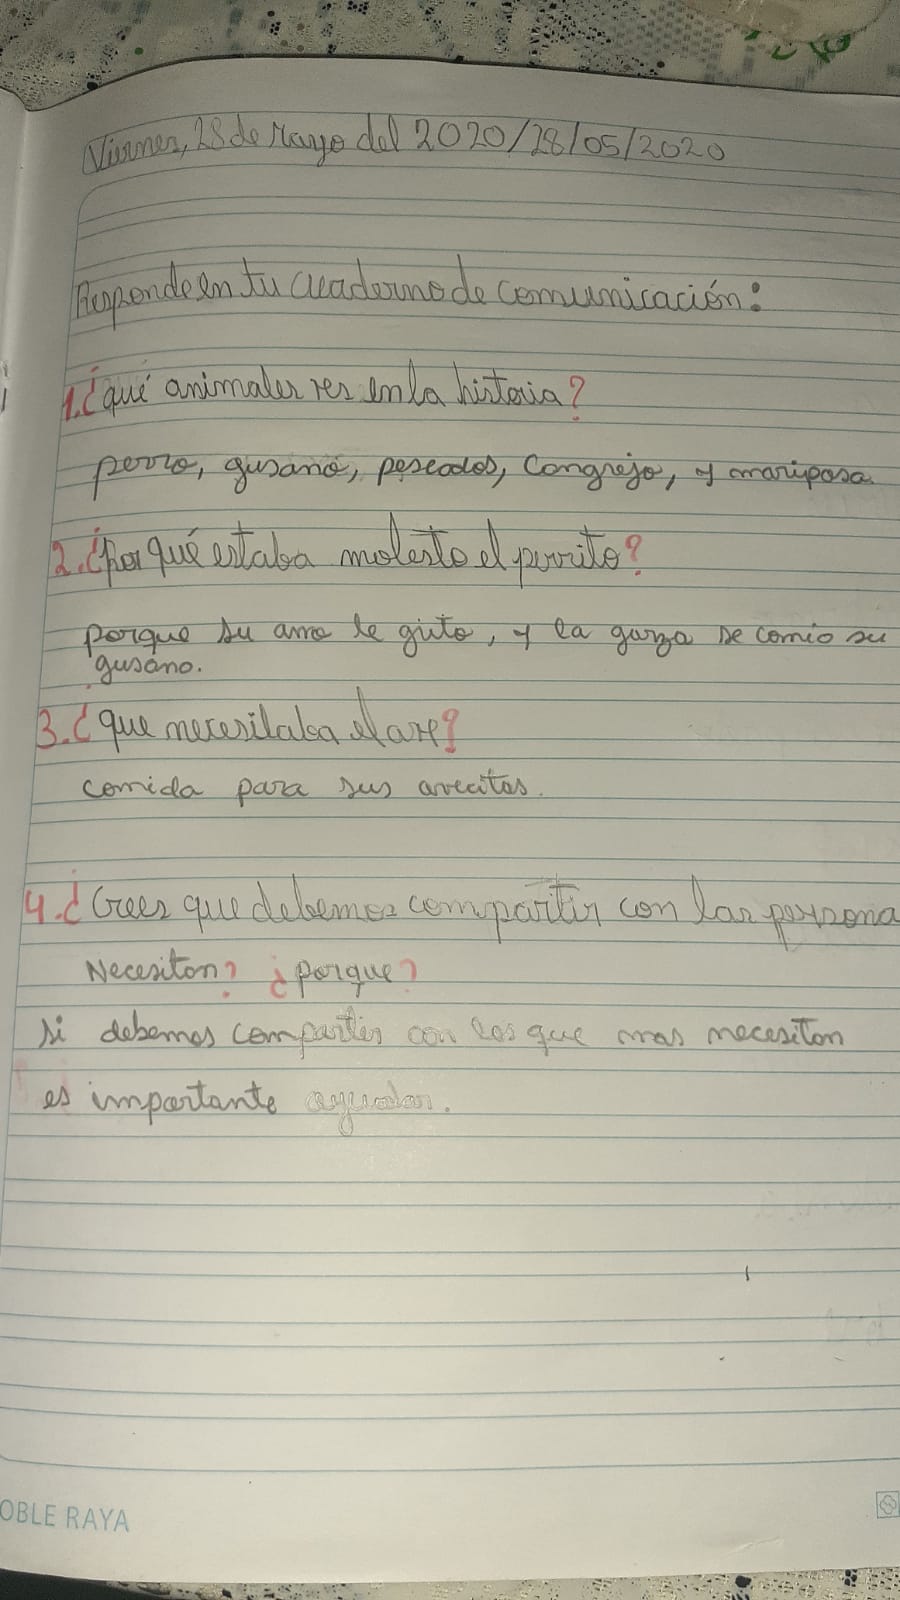 Viernes, 28 de Mayo del 2020/28/05/2020
Responde en tu cuaderno de comunicación:
1.¿qué animales ves en la historia?
perro, gusano, pescados, Congrejo, y mariposa
2.¿Por qué estaba molesto el perrito?
porque su amo le grito, y la garza se comio su
gusano.
3.¿que necesitaba el ave?
comida para sus avecitas.
4.¿Crees que debemos compartir con las persona
Necesitan? ¿porque?
si debemos compartir con los que mas necesitan
es importante ayudar.
OBLE RAYA